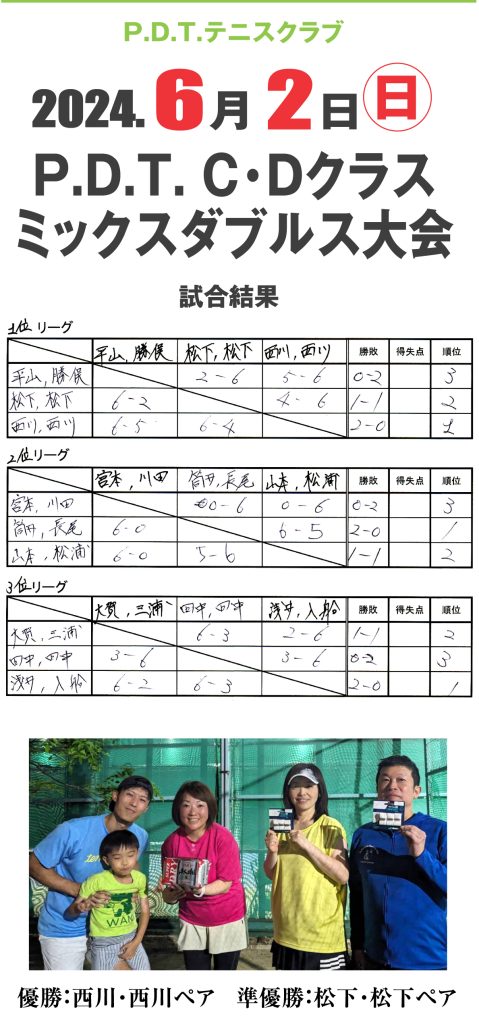 P.D.T.テニスクラブ
2024. 6月2日 日
P.D.T. C・Dクラス
ミックスダブルス大会
試合結果
1位リーグ
平山, 勝俣 松下, 松下 西川, 西川 勝敗 得失点 順位
平山, 勝俣 2-6 5-6 0-2 3
松下, 松下 6-2 4-6 1-1 2
西川, 西川 6-5 6-4 2-0 1
2位リーグ
宮本, 川田 筒井, 長尾 山本, 松浦 勝敗 得失点 順位
宮本, 川田 0-6 0-6 0-2 3
筒井, 長尾 6-0 6-5 2-0 1
山本, 松浦 6-0 5-6 1-1 2
3位リーグ
大賀, 三浦 田中, 田中 浅井, 入船 勝敗 得失点 順位
大賀, 三浦 6-3 2-6 1-1 2
田中, 田中 3-6 3-6 0-2 3
浅井, 入船 6-2 6-3 2-0 1
優勝：西川・西川ペア 準優勝：松下・松下ペア